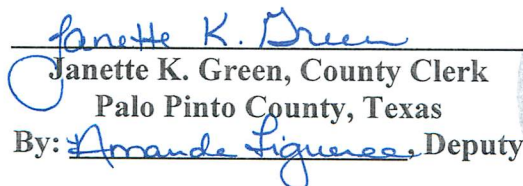 Janette K. Green
Janette K. Green, County Clerk
Palo Pinto County, Texas
By: Amanda Figueroa, Deputy